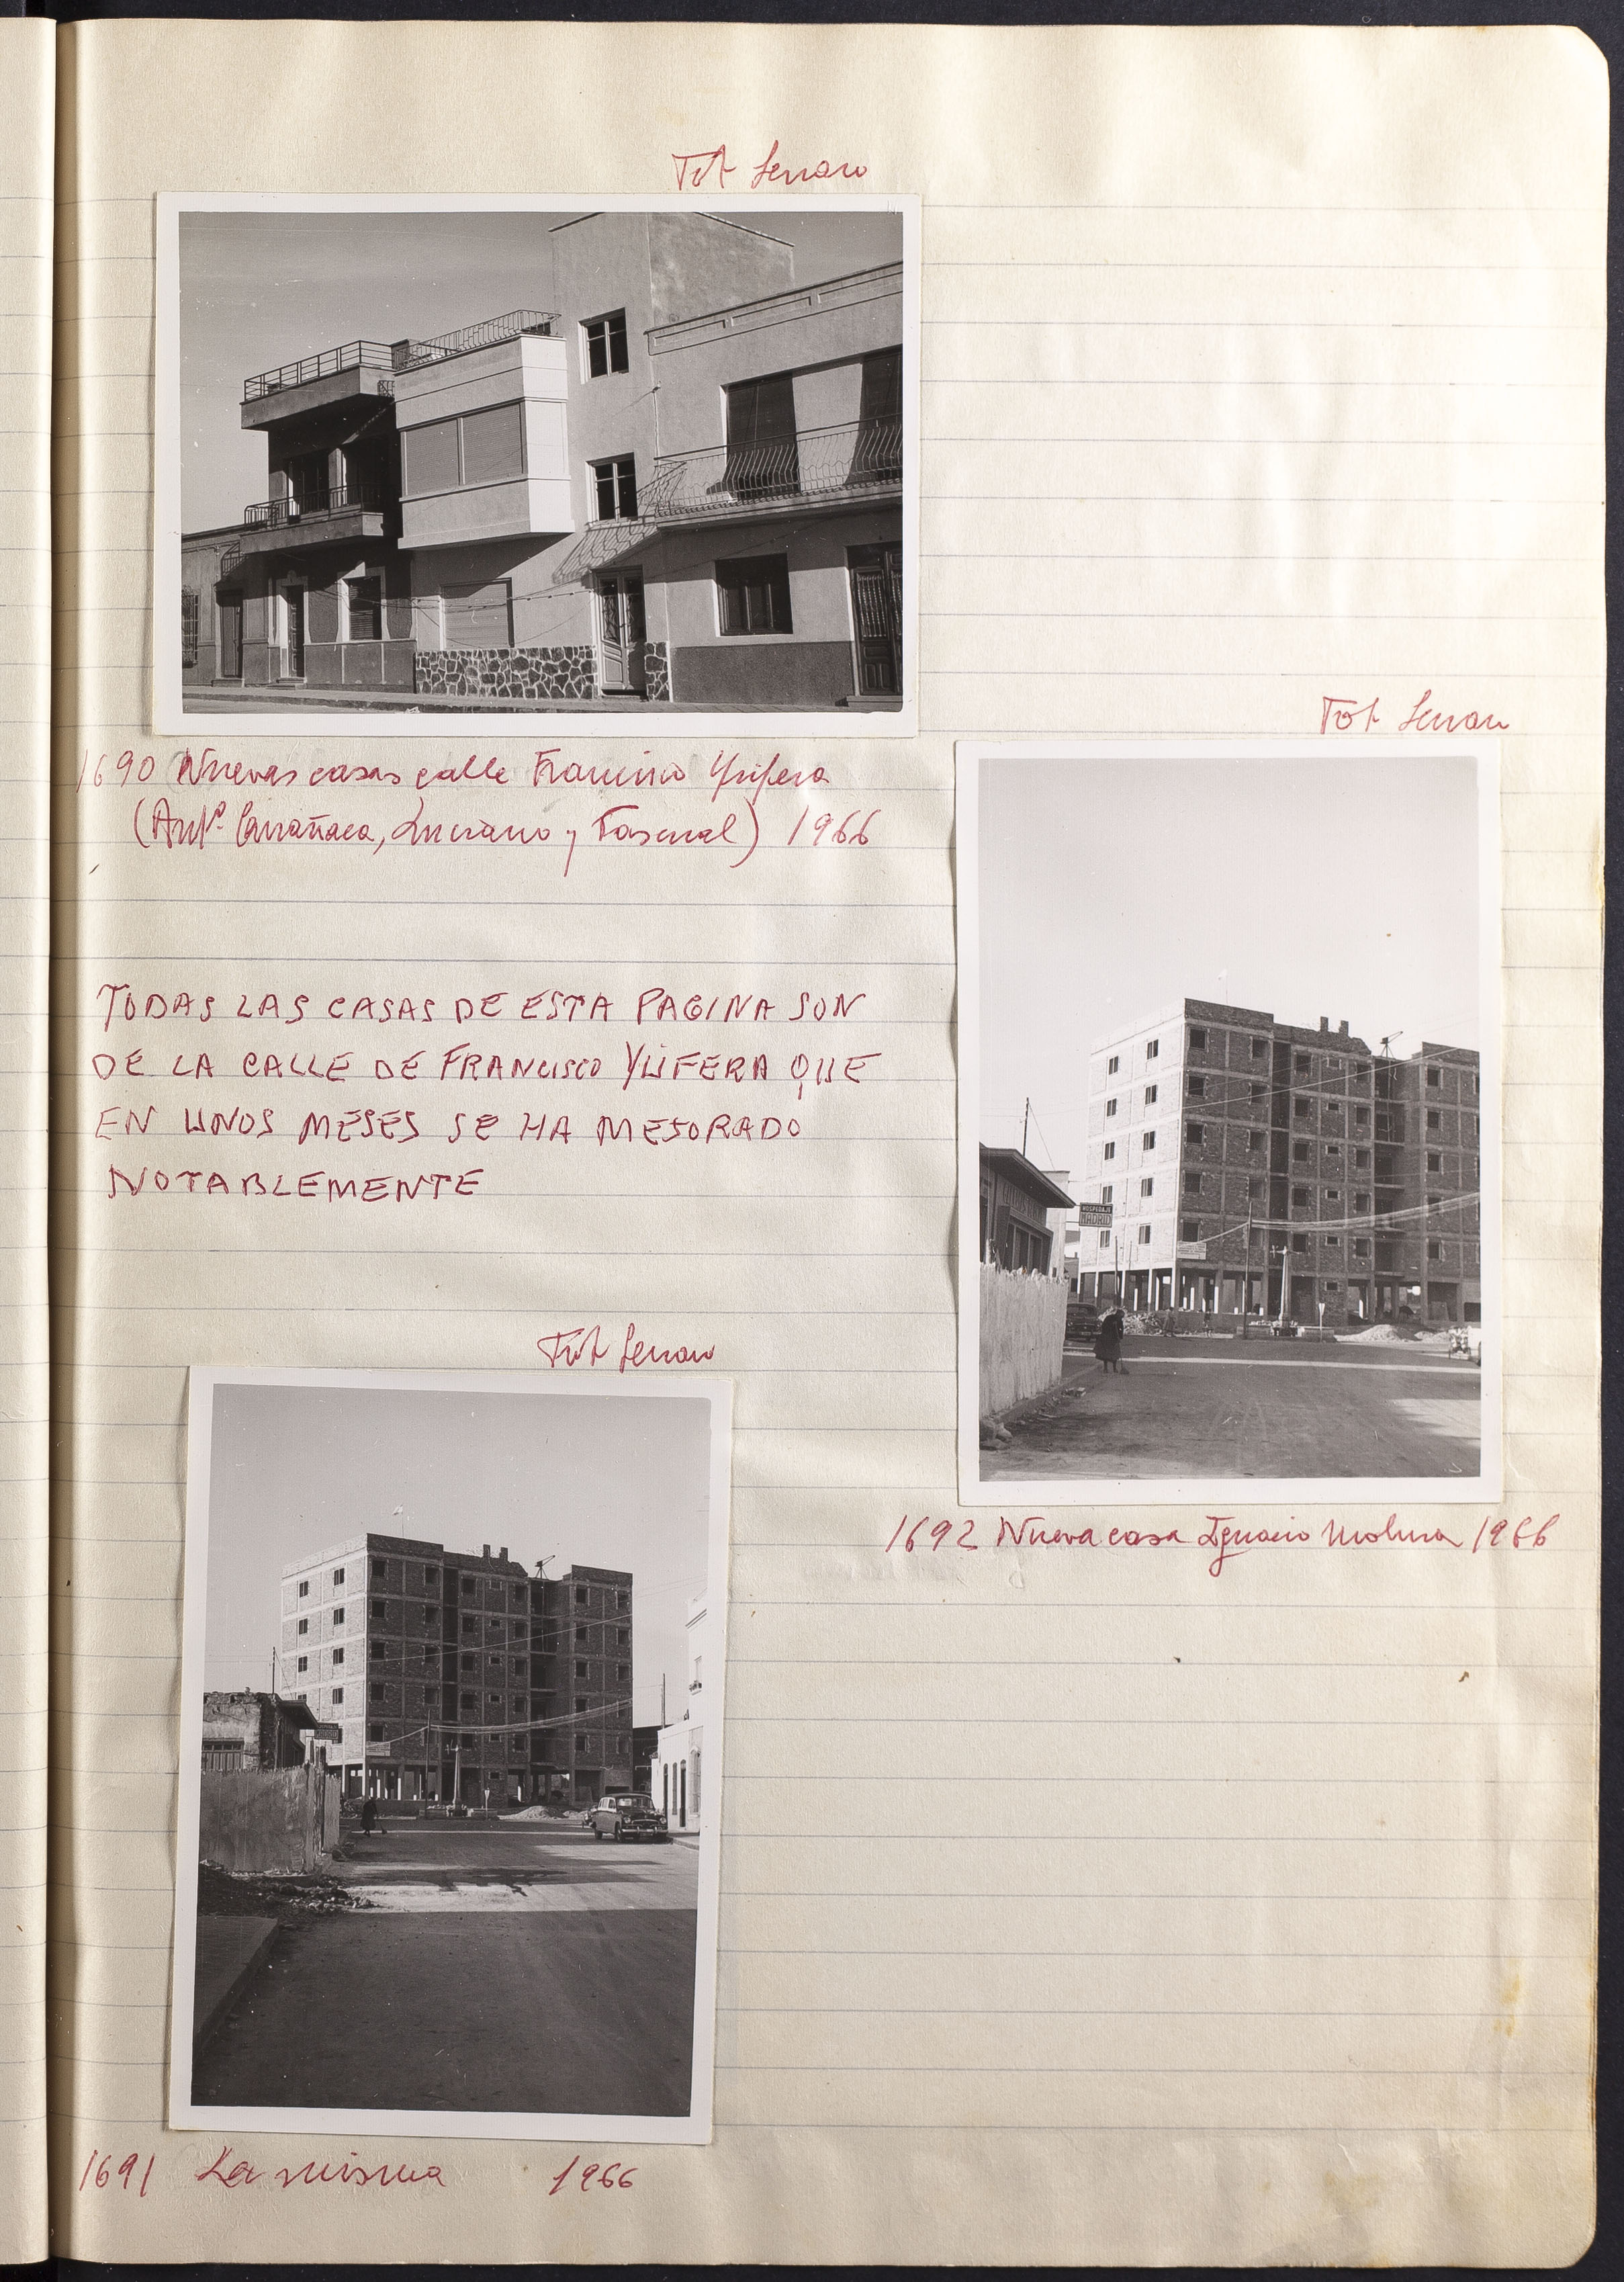 Fot Serrano
1690 Nuevas casas calle Francisco Yufera
(Antº Carrañaca, Luciano y Pascual) 1966
TODAS LAS CASAS DE ESTA PAGINA SON
DE LA CALLE DE FRANCISCO YUFERA QUE
EN UNOS MESES SE HA MEJORADO
NOTABLEMENTE
Fot Serrano
HOSPEDAJE
MADRID
1692 Nueva casa Ignacio Molina 1966
Fot Serrano
1691 La misma 1966